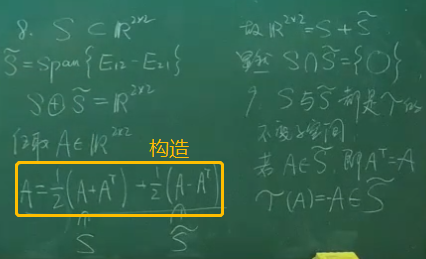 8. S ⊂ ℝ^{2×2}
S̃ = span{E₁₂ - E₂₁}
S ⊕ S̃ = ℝ^{2×2}
任取 A ∈ ℝ^{2×2}
构造
A = ½(A + Aᵀ) + ½(A - Aᵀ)
S S̃
故 ℝ^{2×2} = S + S̃
显然 S ∩ S̃ = {O}
9. S 与 S̃ 都是 τ 的
不变子空间
若 A ∈ S̃, 即 Aᵀ = -A
τ(A) = -A ∈ S̃